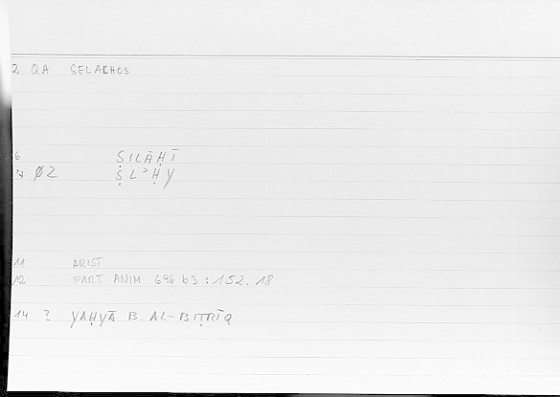 2 QA SELACHOS
6 ṢILĀḤĪ
7 Ø2 ṢLʾḤY
11 ARIST
12 PART ANIM 696 b3 : 152.18
14 ? YAḤYĀ B. AL-BIṬRĪQ